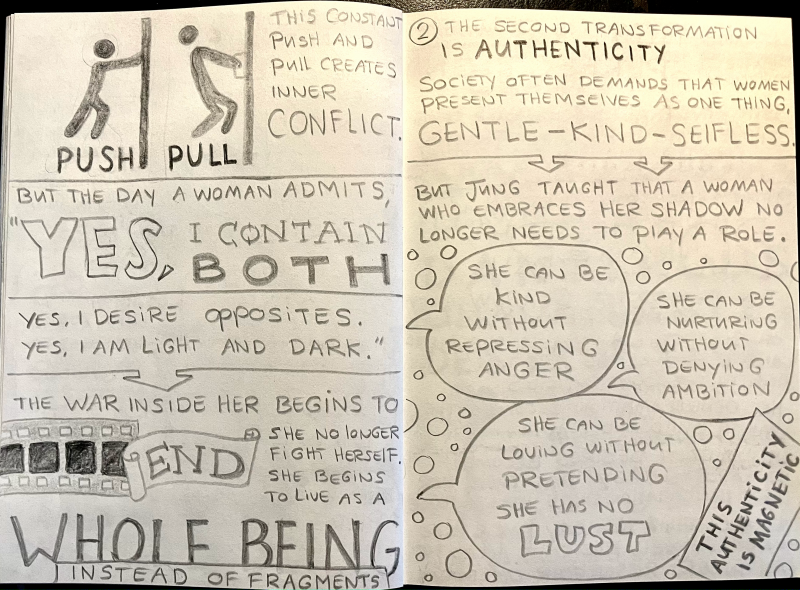 THIS CONSTANT
PUSH AND
PULL CREATES
INNER
CONFLICT.
PUSH PULL
BUT THE DAY A WOMAN ADMITS,
"YES, I CONTAIN
BOTH
YES, I DESIRE OPPOSITES.
YES, I AM LIGHT AND DARK."
THE WAR INSIDE HER BEGINS TO
END
SHE NO LONGER
FIGHT HERSELF.
SHE BEGINS
TO LIVE AS A
WHOLE BEING
INSTEAD OF FRAGMENTS
2 THE SECOND TRANSFORMATION
IS AUTHENTICITY
SOCIETY OFTEN DEMANDS THAT WOMEN
PRESENT THEMSELVES AS ONE THING,
GENTLE – KIND – SELFLESS.
BUT JUNG TAUGHT THAT A WOMAN
WHO EMBRACES HER SHADOW NO
LONGER NEEDS TO PLAY A ROLE.
SHE CAN BE
KIND
WITHOUT
REPRESSING
ANGER
SHE CAN BE
NURTURING
WITHOUT
DENYING
AMBITION
SHE CAN BE
LOVING WITHOUT
PRETENDING
SHE HAS NO
LUST
THIS
AUTHENTICITY
IS MAGNETIC